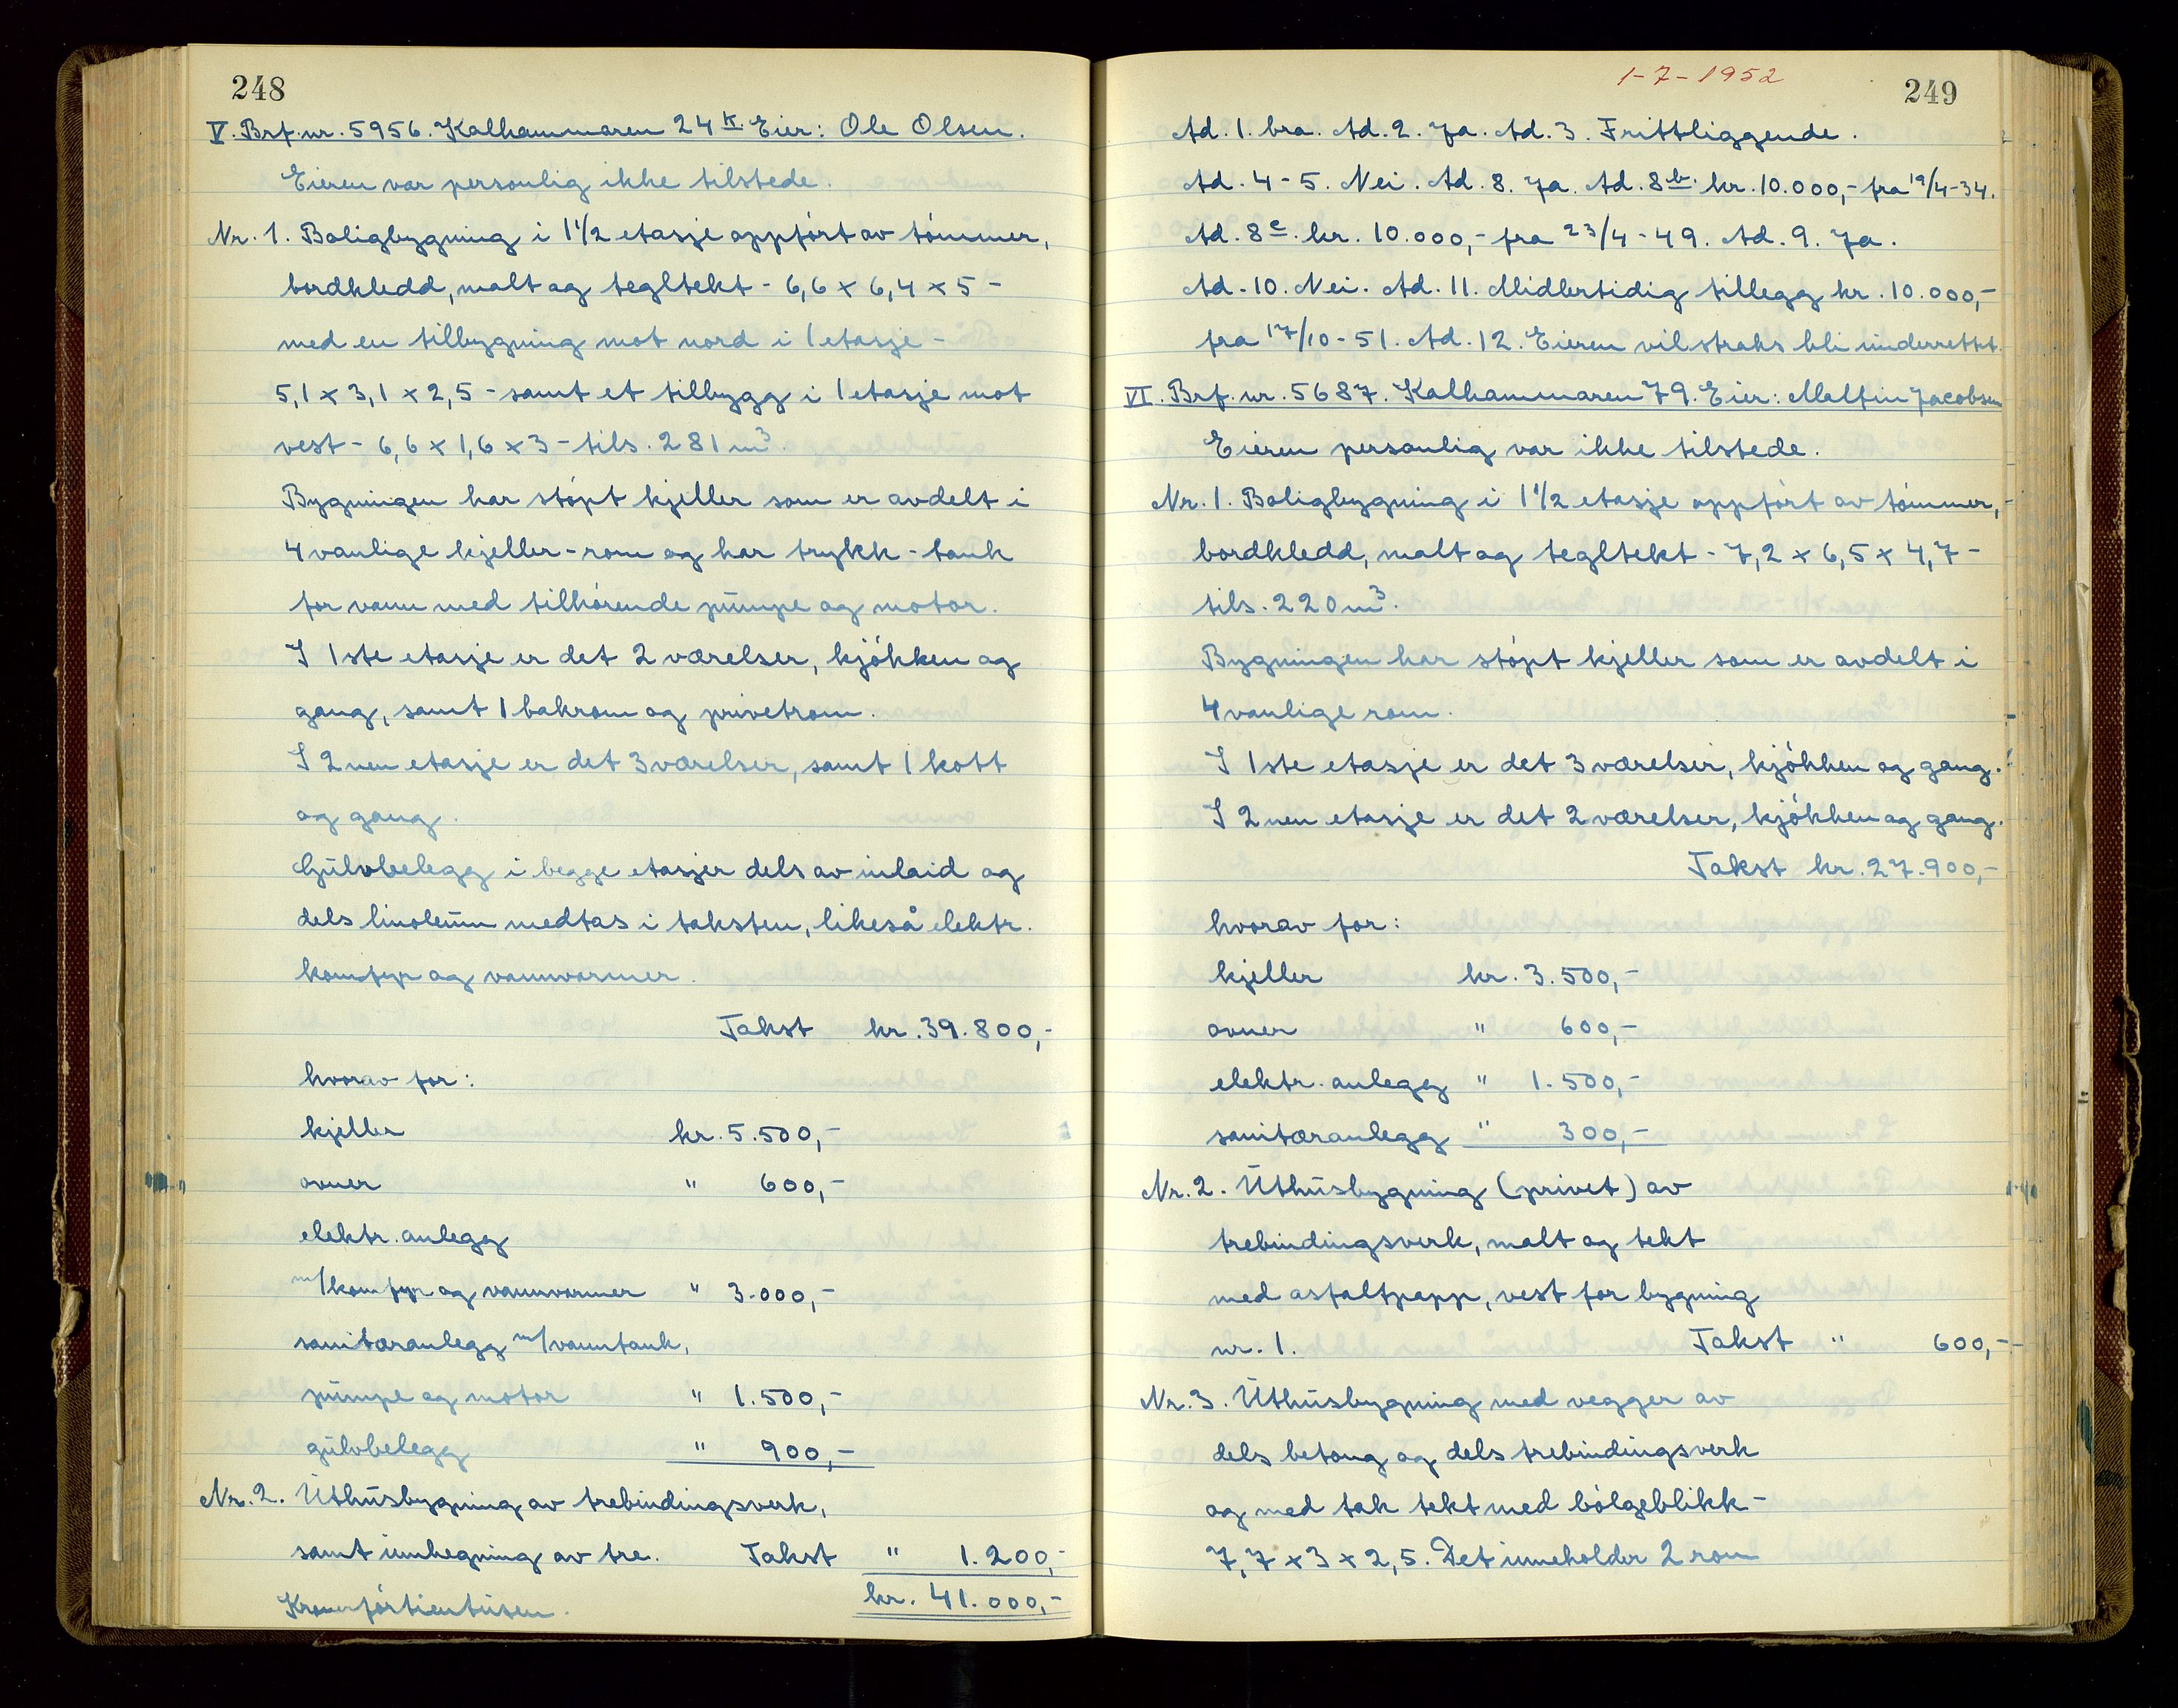 248
V. Brf.nr. 5956. Kalhammaren 24 k. Eier: Ole Olsen.
Eieren var personlig ikke tilstede.
Nr. 1. Boligbygning i 1 1/2 etasje oppført av tømmer,
bordkledd, malt og tegltekt - 6,6 x 6,4 x 5 -
med en tilbygning mot nord i 1 etasje -
5,1 x 3,1 x 2,5 - samt et tilbygg i 1 etasje mot
vest - 6,6 x 1,6 x 3 - tils. 281 m³.
Bygningen har støpt kjeller som er avdelt i
4 vanlige kjeller-rom og har trykk-tank
for vann med tilhørende pumpe og motor.
I 1ste etasje er det 2 værelser, kjøkken og
gang, samt 1 bakrom og privetrom.
I 2nen etasje er det 3 værelser, samt 1 kott
og gang.
Gulvbelegg i begge etasjer dels av inlaid og
dels linoleum medtas i taksten, likeså elektr.
komfyr og vannvarmer.
Takst kr. 39.800,-
hvorav for:
kjeller kr. 5.500,-
ovner " 600,-
elektr. anlegg
m/komfyr og vannvarmer " 3.000,-
sanitæranlegg m/vanntank,
pumpe og motor " 1.500,-
gulvbelegg " 900,-
Nr. 2. Uthusbygning av trebindingsverk,
samt innhegning av tre. Takst " 1.200,-
Kronerførtientusen. kr. 41.000,-
1-7-1952
249
Ad. 1. bra. Ad. 2. Ja. Ad. 3. Frittliggende.
Ad. 4-5. Nei. Ad. 8. Ja. Ad. 8 b. kr. 10.000,- fra 19/4-34.
Ad. 8 c. kr. 10.000,- fra 23/4-49. Ad. 9. Ja.
Ad. 10. Nei. Ad. 11. Midlertidig tillegg kr. 10.000,-
fra 17/10-51. Ad. 12. Eieren vil straks bli underrettet.
VI. Brf. nr. 5687. Kalhammaren 79. Eier: Malfin Jacobsen
Eieren personlig var ikke tilstede.
Nr. 1. Boligbygning i 1 1/2 etasje oppført av tømmer,
bordkledd, malt og tegltekt - 7,2 x 6,5 x 4,7 -
tils. 220 m³.
Bygningen har støpt kjeller som er avdelt i
4 vanlige rom.
I 1ste etasje er det 3 værelser, kjøkken og gang.
I 2nen etasje er det 2 værelser, kjøkken og gang.
Takst kr. 27.900,-
hvorav for:
kjeller kr. 3.500,-
ovner " 600,-
elektr. anlegg " 1.500,-
sanitæranlegg " 300,-
Nr. 2. Uthusbygning (privet) av
trebindingsverk, malt og tekt
med asfaltpapp, vest for bygning
nr. 1. Takst " 600,-
Nr. 3. Uthusbygning med vegger av
dels betong og dels trebindingsverk
og med tak tekt med bølgeblikk -
7,7 x 3 x 2,5. Det inneholder 2 rom